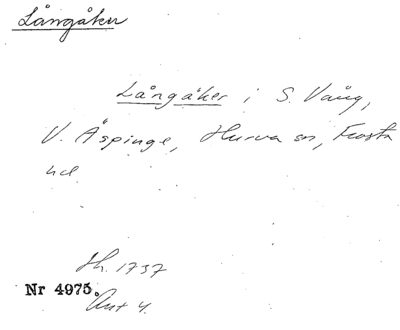 Långåker
Långåker i S. Vång,
V. Äspinge, Hurva sn, Frosta
hd
Sh. 1737
Nr 4975.
Akt 4.